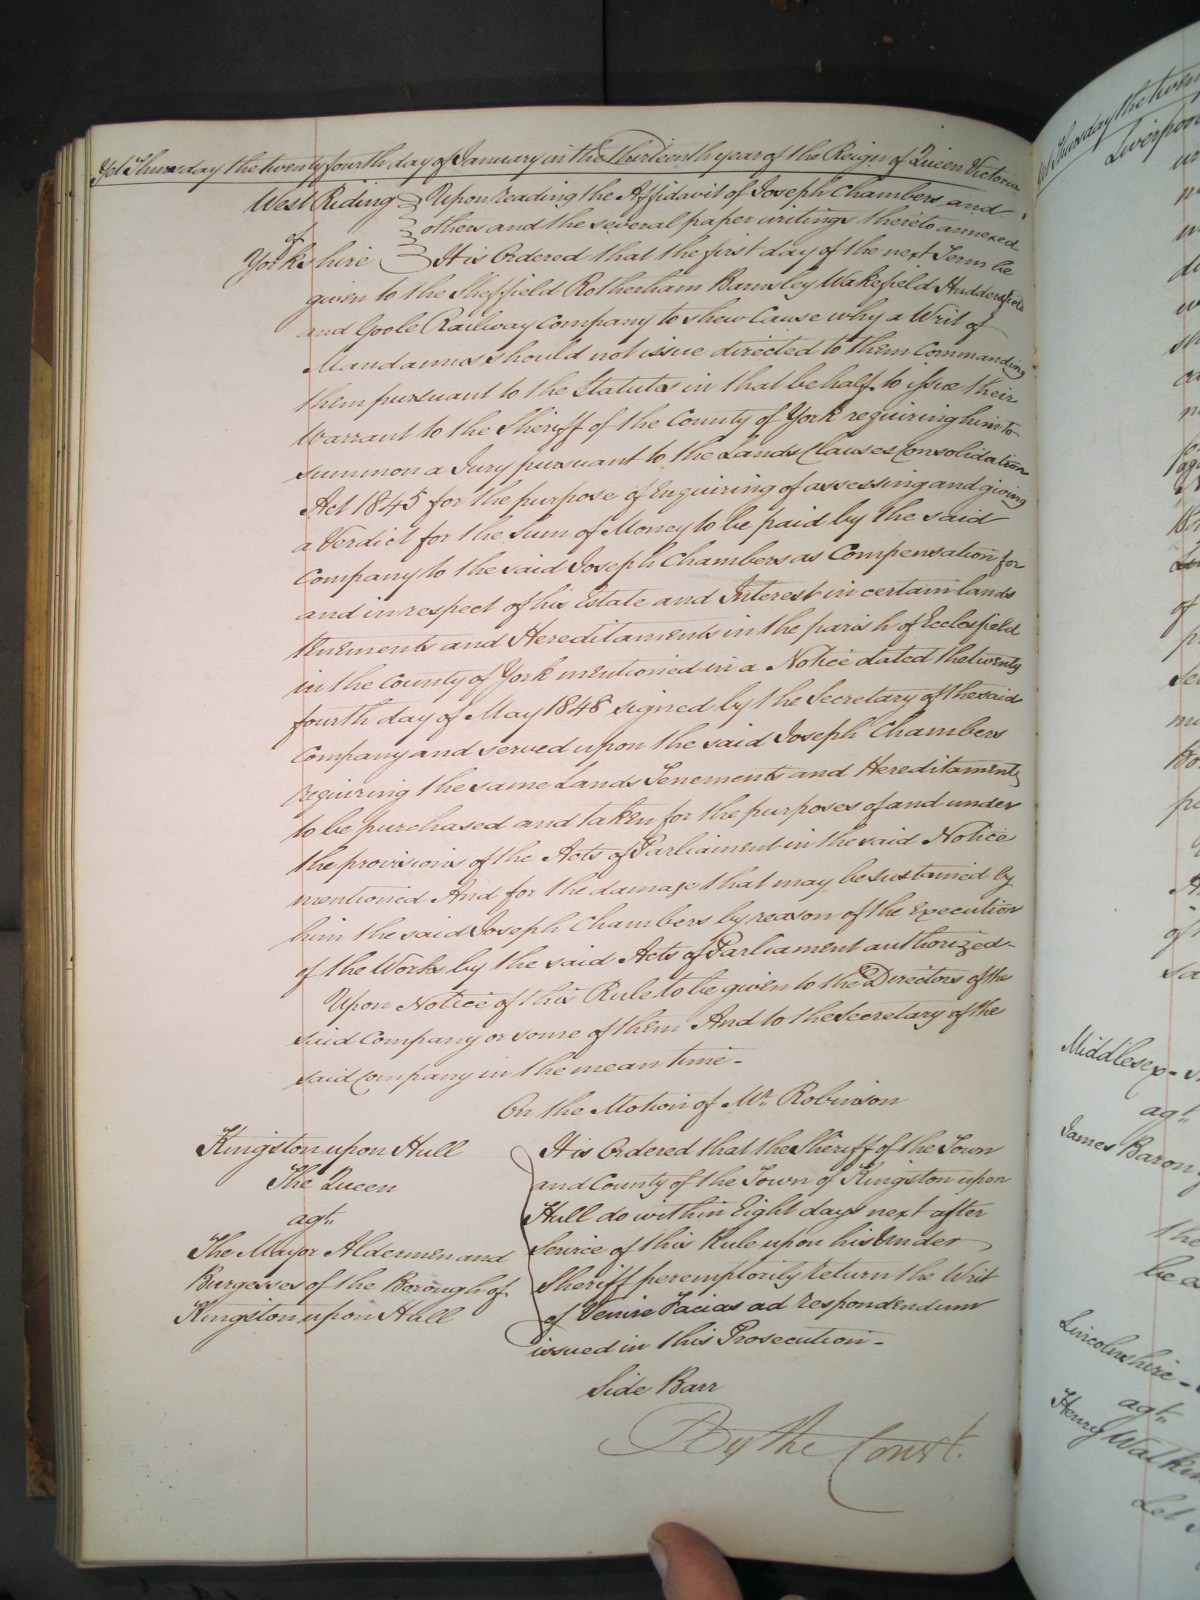 Yet Thursday the twenty fourth day of January in the Thirteenth year of the Reign of Queen Victoria
West Riding of Yorkshire
Upon reading the Affidavit of Joseph Chambers and
others and the several paper writings thereto annexed
It is Ordered that the first day of the next Term be
given to the Sheffield Rotherham Barnsley Wakefield Huddersfield
and Goole Railway Company to shew Cause why a Writ of
Mandamus should not issue directed to them Commanding
them pursuant to the Statutes in that behalf to issue their
Warrant to the Sheriff of the County of York requiring him to
summon a Jury pursuant to the Lands Clauses Consolidation
Act 1845 for the purpose of Enquiring of assessing and giving
a Verdict for the Sum of Money to be paid by the said
Company to the said Joseph Chambers as Compensation for
and in respect of his Estate and Interest in certain lands
tenements and Hereditaments in the parish of Ecclesfield
in the County of York mentioned in a Notice dated the twenty
fourth day of May 1848 signed by the Secretary of the said
Company and served upon the said Joseph Chambers
requiring the same Lands Tenements and Hereditaments
to be purchased and taken for the purposes of and under
the provisions of the Acts of Parliament in the said Notice
mentioned And for the damage that may be sustained by
him the said Joseph Chambers by reason of the Execution
of the Works by the said Acts of Parliament authorized
Upon Notice of this Rule to be given to the Directors of the
said Company or some of them And to the Secretary of the
said Company in the mean time -
On the Motion of Mr. Robinson
Kingston upon Hull
The Queen
agt.
The Mayor Aldermen and
Burgesses of the Borough of
Kingston upon Hull
It is Ordered that the Sheriff of the Town
and County of the Town of Kingston upon
Hull do within Eight days next after
Service of this Rule upon his Under
Sheriff peremptorily return the Writ
of Venire Facias ad respondendum
issued in this Prosecution -
Side Barr
By the Court.
Thursday the
Liverpool
Middlesex -
agt.
James Baron
the
be a
Lincolnshire -
agt.
Henry
Let